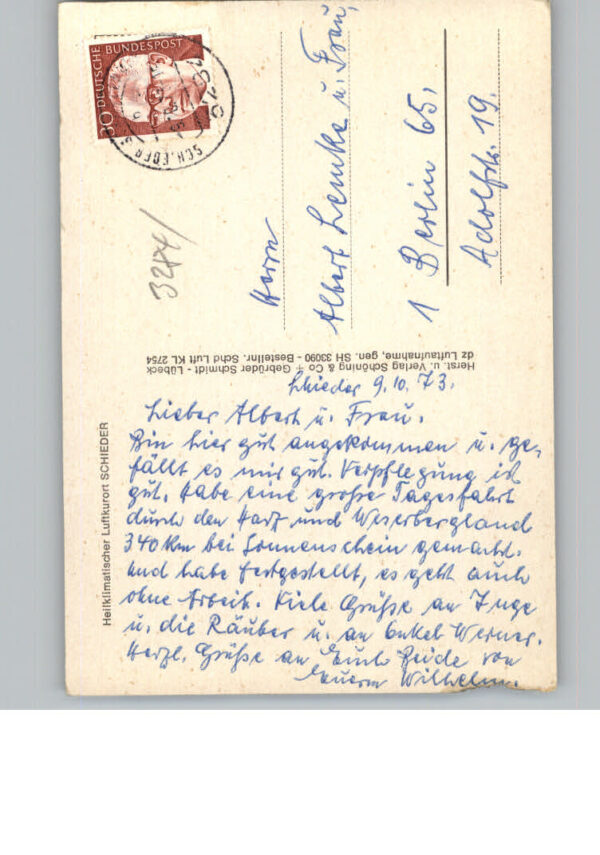 DEUTSCHE BUNDESPOST
30
3274/
Herrn
Albert Lemke u. Frau,
1 Berlin 65,
Adolfstr. 19.
Herst. u. Verlag Schöning & Co + Gebrüder Schmidt - Lübeck
dz Luftaufnahme, gen. SH 33090 - Bestellnr. Schd Luft KL 2754
Heilklimatischer Luftkurort SCHIEDER
Schieder 9.10.73.
Lieber Albert u. Frau.
Bin hier gut angekommen u. ge-
fällt es mir gut. Verpflegung ist
gut, habe eine große Tagesfahrt
durch den Harz und Weserbergland
340 km bei Sonnenschein gemacht.
und habe festgestellt, es geht auch
ohne Arbeit. Viele Grüße an Inge
u. die Räuber u. an Onkel Werner.
Herzl. Grüße an Euch beide von
Euerm Wilhelm.